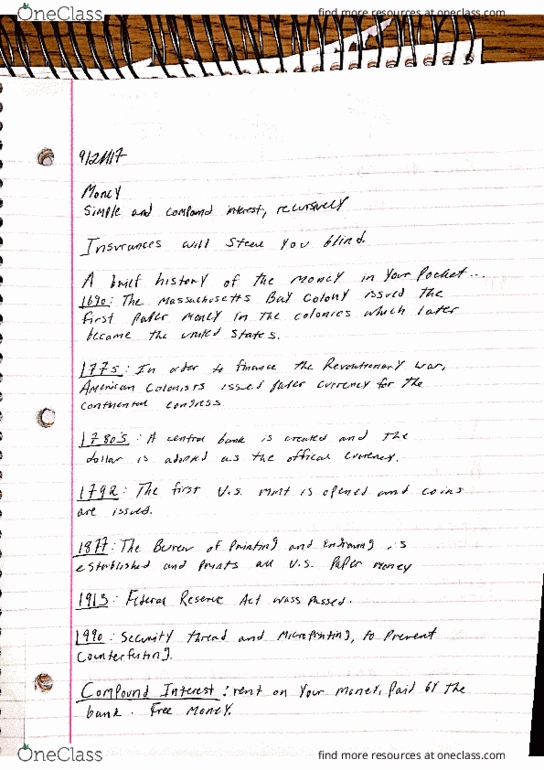 OneClass
find more resources at oneclass.com
9/21/17
Money
Simple and compound interest, recursively
Insurances will steal you blind.
A brief history of the money in your pocket...
1690: The Massachusetts Bay Colony issued the
first paper money in the colonies which later
become the united States.
1775: In order to finance the Revolutionary war,
American Colonists issued paper currency for the
continental congress.
1780's: A central bank is created and the
dollar is adopted as the offical currency.
1792: The first U.S. mint is opened and coins
are issued.
1877: The Bureu of Printing and Engraving is
established and prints all U.S. Paper money
1913: Federal Reserve Act wass passed.
1990: Security thread and Microprinting, to Prevent
Counterfeiting.
Compound Interest: rent on your money, Paid by the
bank. Free Money.
OneClass
find more resources at oneclass.com